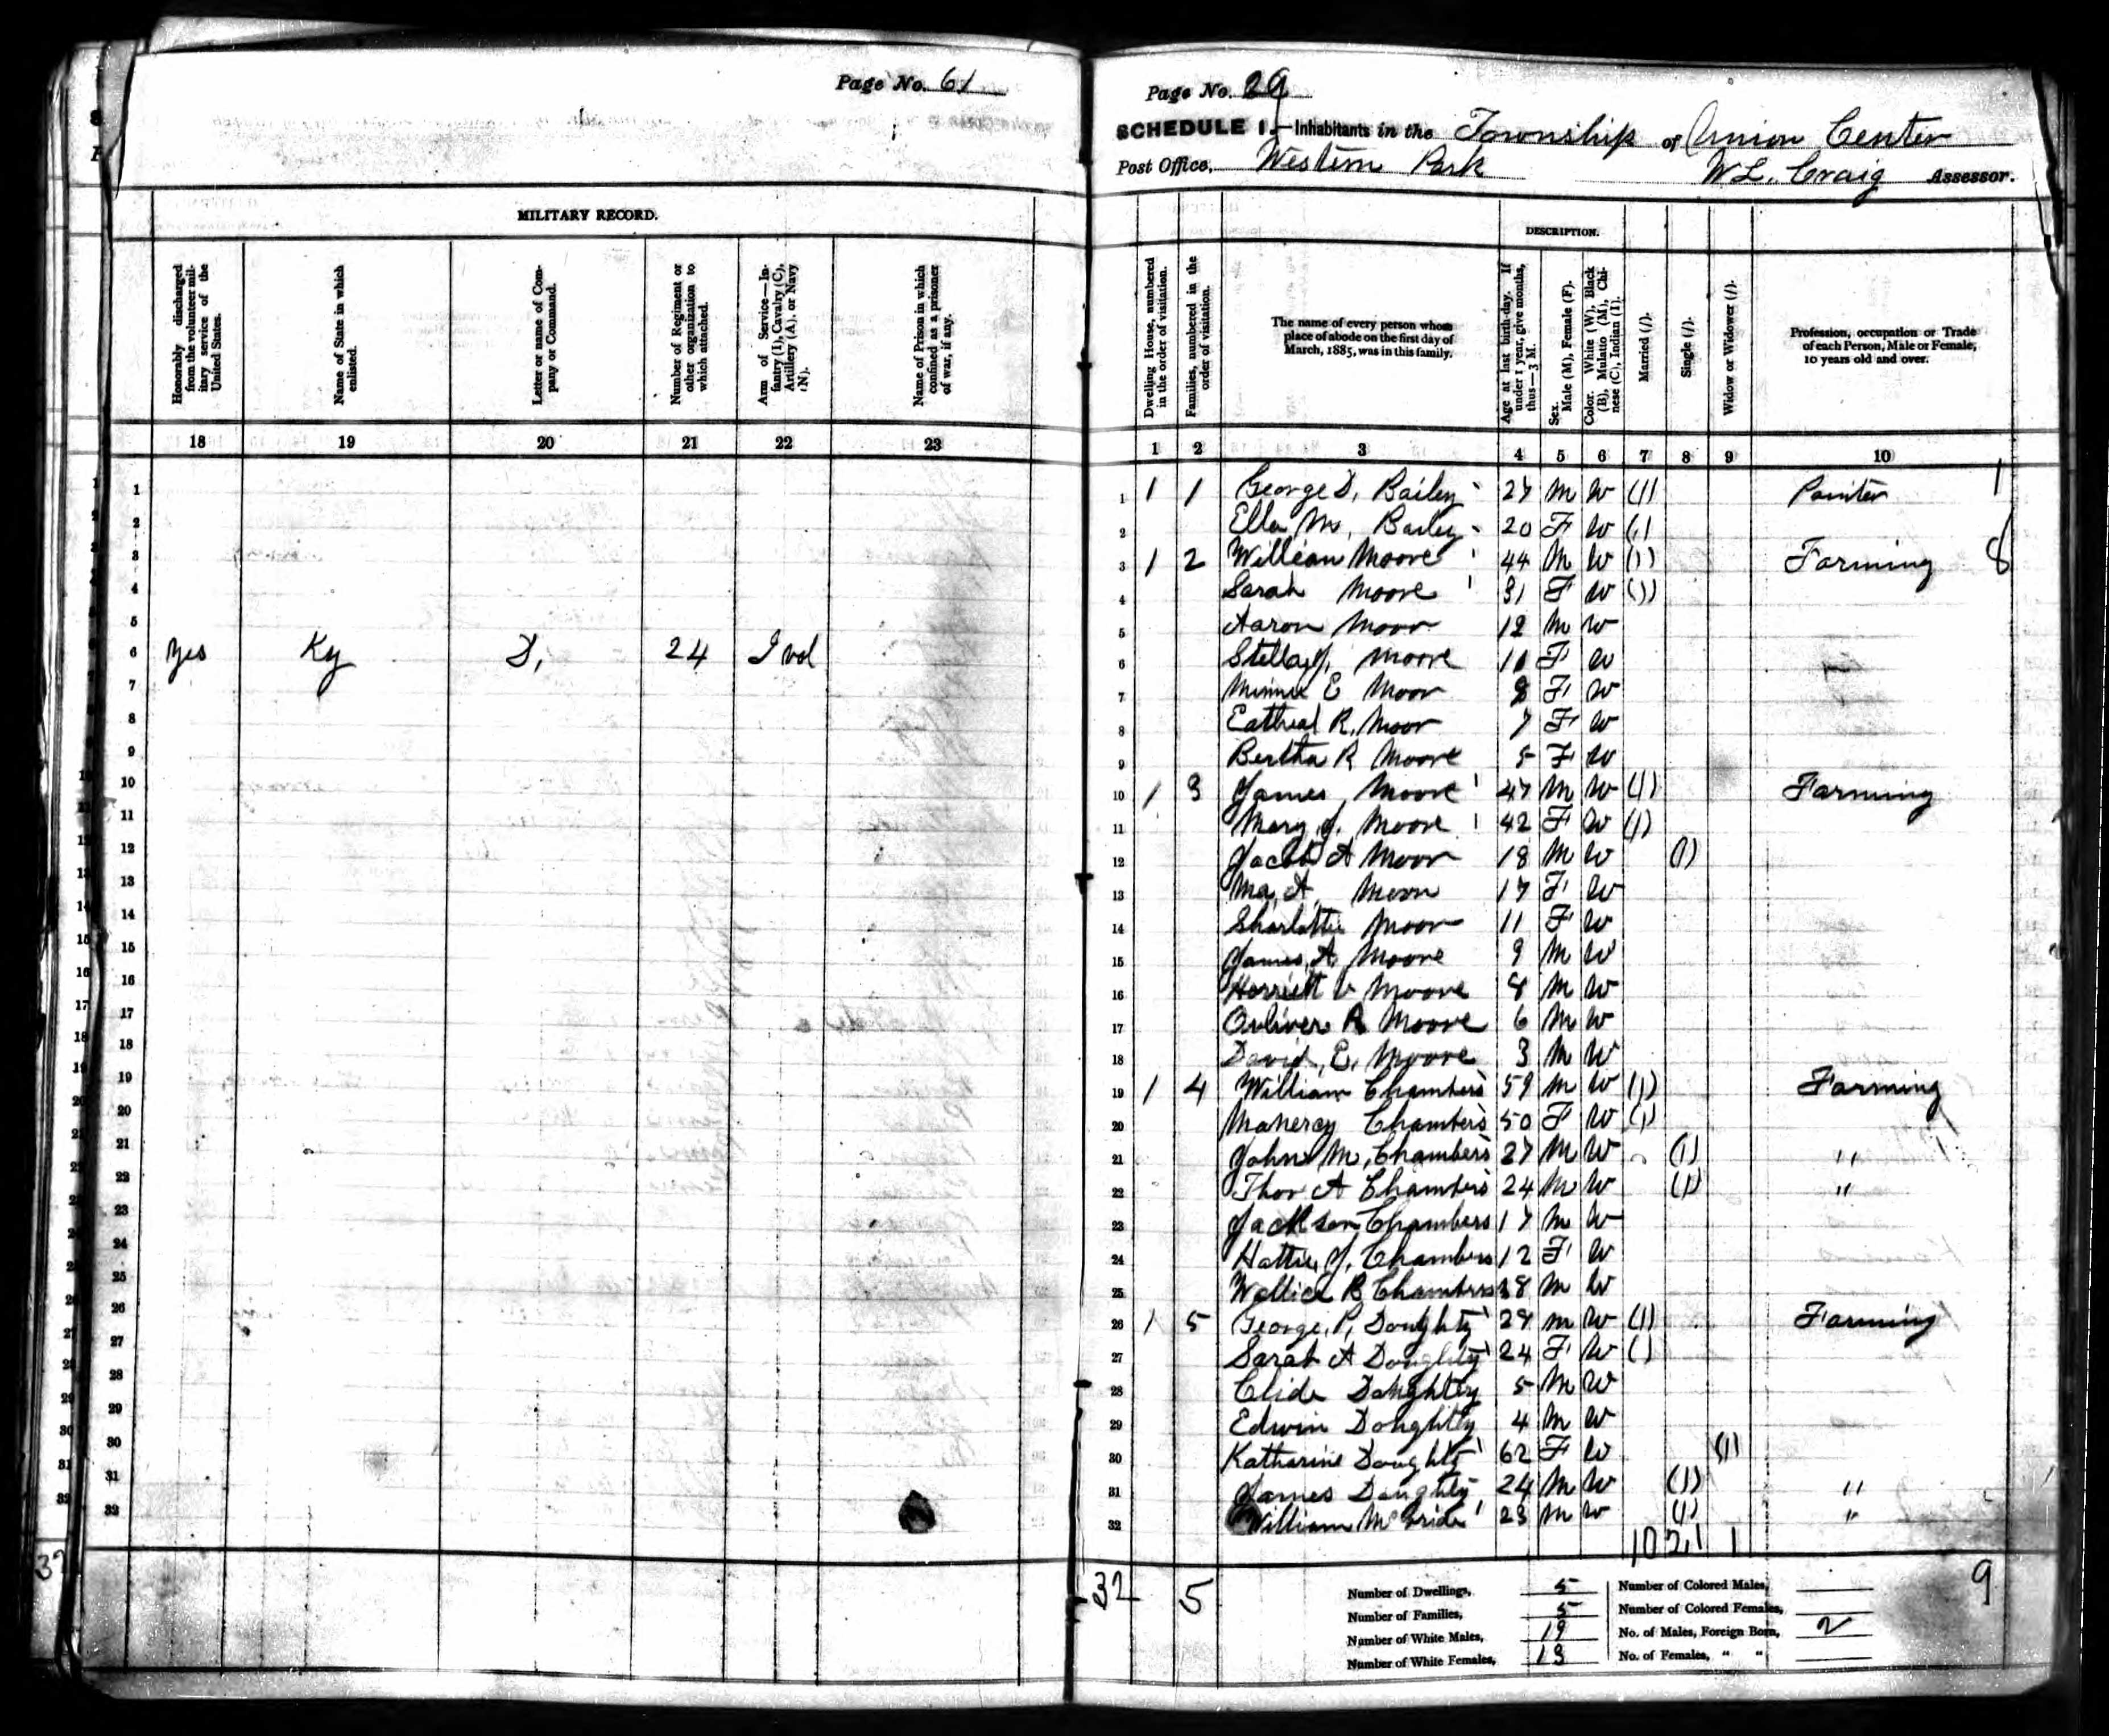 Page No. 61
MILITARY RECORD.
Honorably discharged from the volunteer military service of the United States.
Name of State in which enlisted.
Letter or name of Company or Command.
Number of Regiment or other organization to which attached.
Arm of Service—Infantry (I), Cavalry (C), Artillery (A), or Navy (N).
Name of Prison in which confined as a prisoner of war, if any.
18 19 20 21 22 23
1
2
3
4
5
6 Yes Ky D, 24 I vol
7
8
9
10
11
12
13
14
15
16
17
18
19
20
21
22
23
24
25
26
27
28
29
30
31
32
Page No. 29
SCHEDULE 1.—Inhabitants in the Township of Union Center
Post Office, Western Park W L. Craig Assessor.
DESCRIPTION.
Dwelling House, numbered in the order of visitation.
Families, numbered in the order of visitation.
The name of every person whose place of abode on the first day of March, 1885, was in this family.
Age at last birth-day. If under 1 year, give months, thus—3 M.
Sex. Male (M), Female (F).
Color. White (W), Black (B), Mulatto (M), Chinese (C), Indian (I).
Married (/).
Single (/).
Widow or Widower (/).
Profession, occupation or Trade of each Person, Male or Female, 10 years old and over.
1 2 3 4 5 6 7 8 9 10
1 1 1 George D, Bailey 27 M W (1) Painter 1
2 Ella M, Bailey 20 F W (1)
3 1 2 William Moore 44 M W (1) Farming 8
4 Sarah Moore 31 F W (1)
5 Aaron Moor 12 M W
6 Stella J, Moore 11 F W
7 Minnie E Moor 8 F W
8 Eatheal R. Moor 7 F W
9 Bertha R Moore 5 F W
10 1 3 James Moore 47 M W (1) Farming
11 Mary J. Moore 42 F W (1)
12 Jacob A Moor 18 M W (1)
13 Ma, A Moon 17 F W
14 Sharlottie Moor 11 F W
15 James, A, Moore 9 M W
16 Herriett V Moore 8 M W
17 Ooliver R Moore 6 M W
18 David, E, Moore 3 M W
19 1 4 William Chambers 59 M W (1) Farming
20 Manercy Chambers 50 F W (1)
21 John M, Chambers 27 M W (1) "
22 Thos A Chambers 24 M W (1) "
23 Jackson Chambers 17 M W
24 Hattie J. Chambers 12 F W
25 Wallice B Chambers 8 M W
26 1 5 George, P, Doughty 29 M W (1) Farming
27 Sarah A Doughty 24 F W ()
28 Clide Doughty 5 M W
29 Edwin Doughty 4 M W
30 Katharine Doughty 62 F W (1)
31 James Doughty 24 M W (1) "
32 William McBride 23 M W (1) "
10 21 1
32 5
Number of Dwellings, 5
Number of Families, 5
Number of White Males, 19
Number of White Females, 13
Number of Colored Males,
Number of Colored Females,
No. of Males, Foreign Born, 2
No. of Females, " "
9